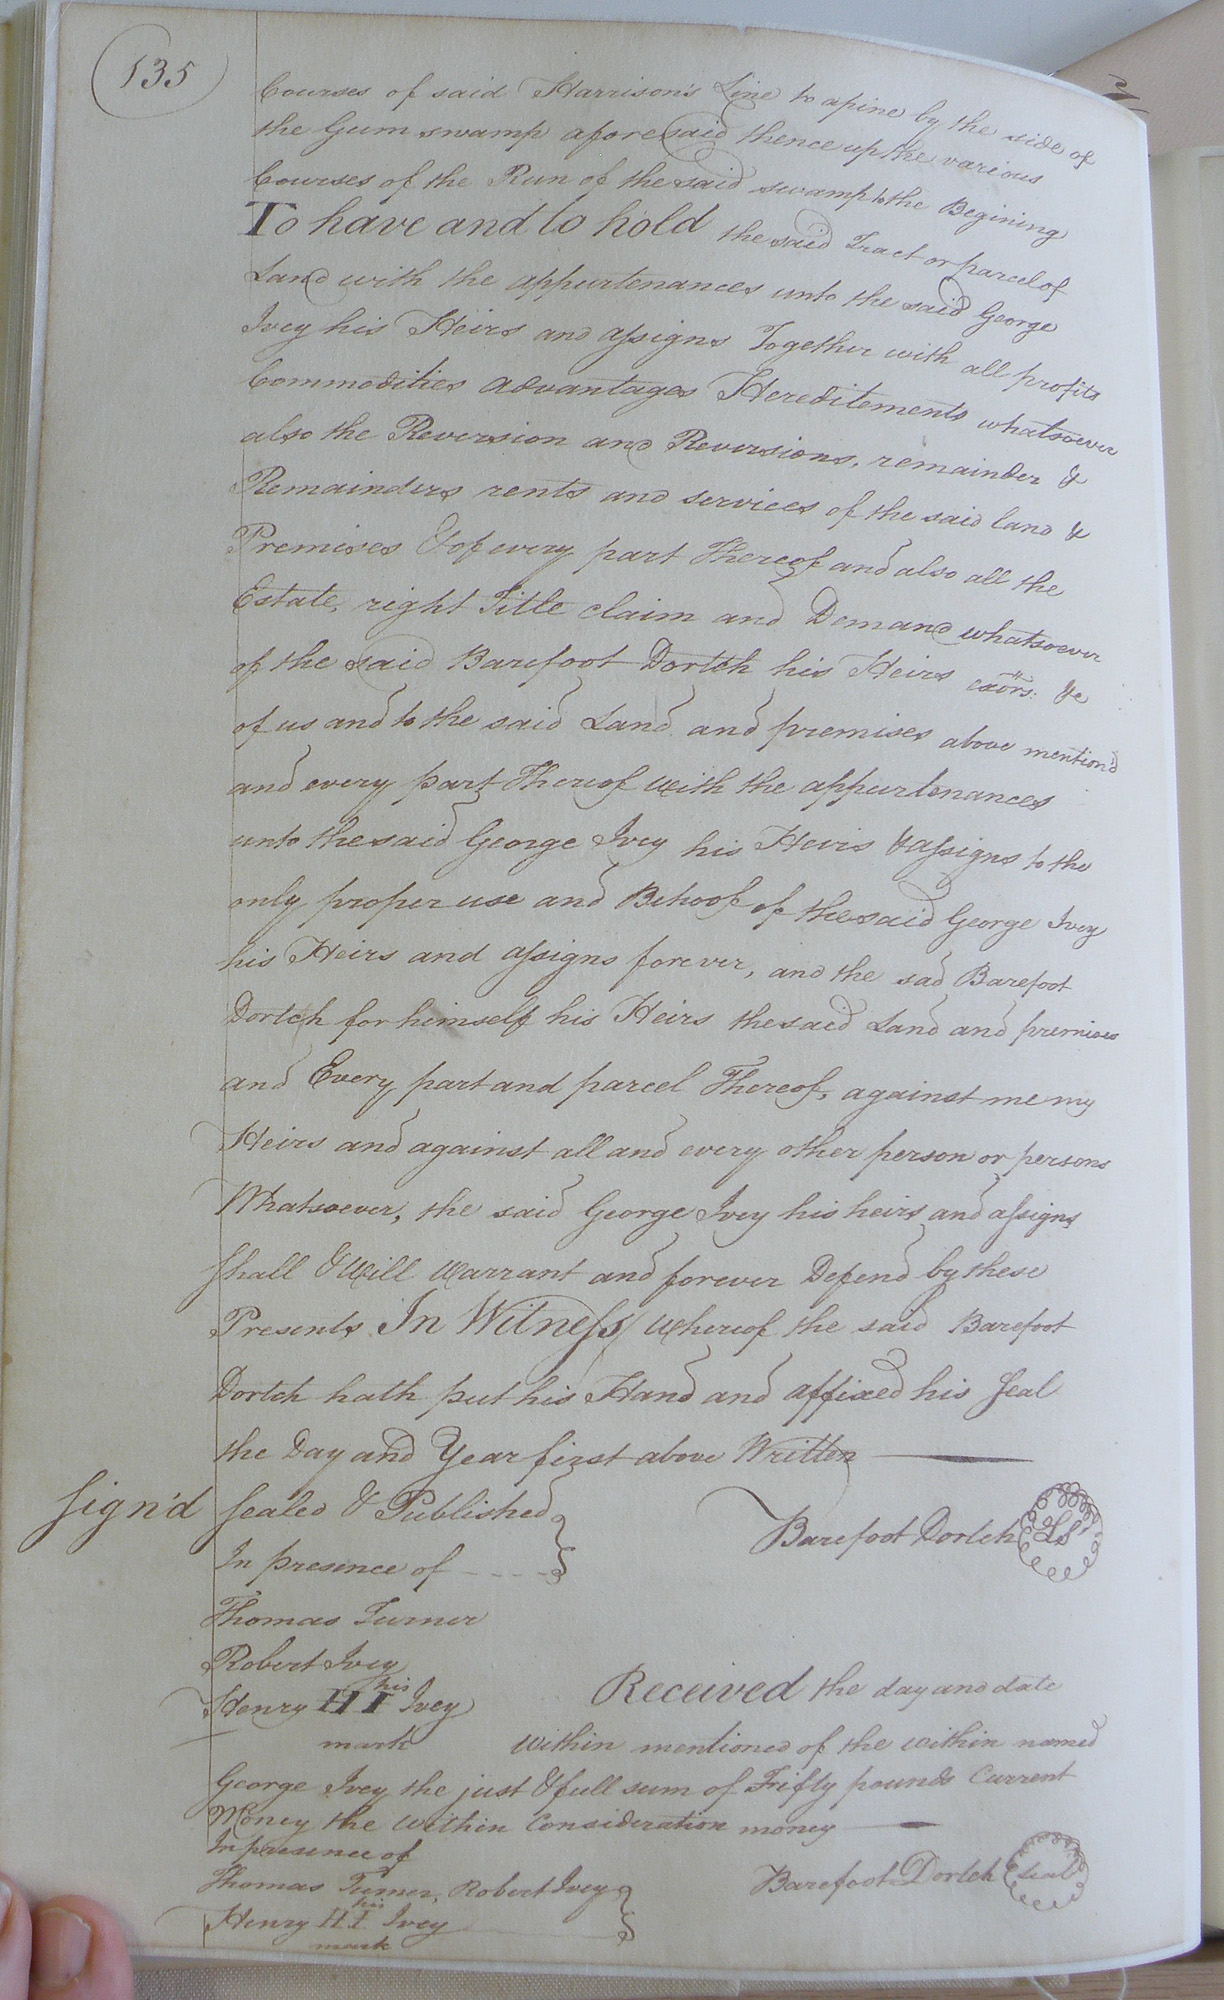 135
Courses of said Harrison's Line to a pine by the side of
the Gum swamp aforesaid thence up the various
Courses of the Run of the said swamp to the Begining
To have and to hold the said Tract or parcel of
Land with the appurtenances unto the said George
Ivey his Heirs and assigns Together with all profits
Commodities advantages Hereditements whatsoever
also the Reversion and Reversions, remainder &
Remainders rents and services of the said land &
Premises & of every part Thereof and also all the
Estate, right Title claim and Demand whatsoever
of the said Barefoot Dortch his Heirs exors: &c
of us and to the said Land and premises above mention'd
and every part Thereof with the appurtenances
unto the said George Ivey his Heirs & assigns to the
only proper use and Behoof of the said George Ivey
his Heirs and assigns forever, and the sad Barefoot
Dortch for himself his Heirs the said Land and premises
and Every part and parcel Thereof, against me my
Heirs and against all and every other person or persons
Whatsoever, the said George Ivey his heirs and assigns
shall & will warrant and forever Defend by these
Presents In Witness whereof the said Barefoot
Dortch hath put his Hand and affixed his seal
the Day and Year first above Written
Sign'd sealed & Published
In presence of
Barefoot Dortch LS
Thomas Turner
Robert Ivey
his
Henry H I Ivey
mark
Received the day and date
within mentioned of the within named
George Ivey the just & full sum of Frifty pounds Current
Money the within Consideration money
In presence of
Thomas Turner, Robert Ivey
Barefoot Dortch Seal
his
Henry H I Ivey
mark